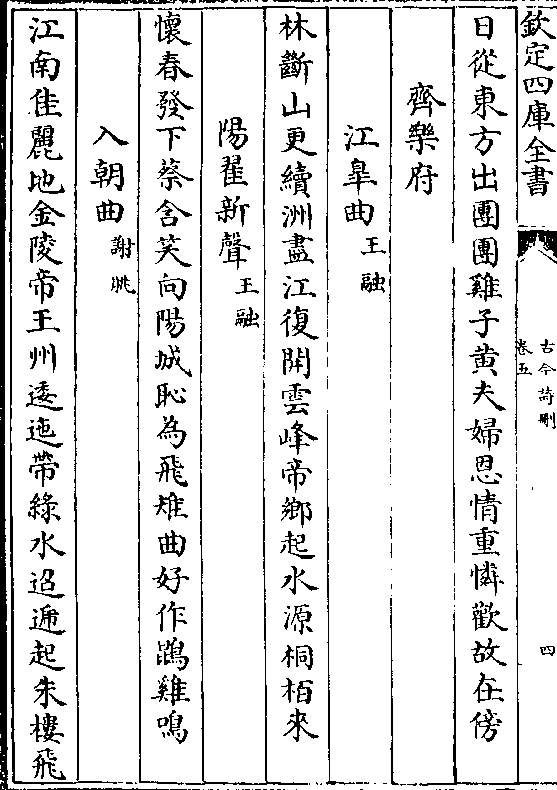 欽定四庫全書
古今詩刪
卷五
四
日從東方出團團雞子黄夫婦恩情重憐歡故在傍
齊樂府
江臯曲王融
林斷山更續洲盡江復開雲峰帝鄉起水源桐栢來
陽翟新聲王融
懷春發下蔡含笑向陽城恥為飛雉曲好作鵾雞鳴
入朝曲謝朓
江南佳麗地金陵帝王州逶迤帶綠水迢遞起朱樓飛